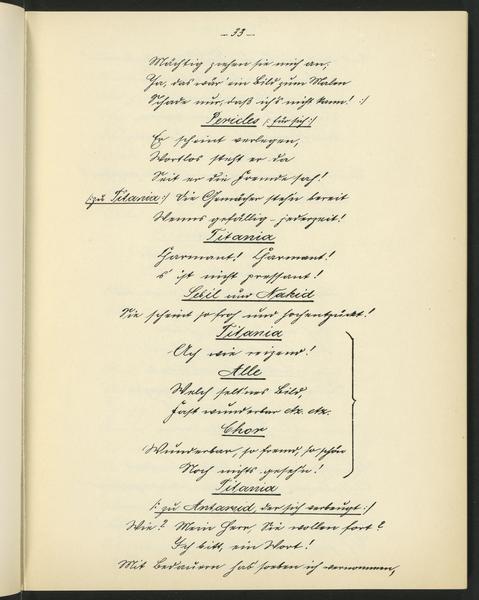 - 33 -
Mächtig ziehen sie mich an;
Ja, das wär' ein Bild zum Malen
Schade nur, daß ich's nicht kann! :/
Pericles /: für sich :/
Er scheint verlegen,
Wortlos steht er da
Seit er die Fremde sah!
/: zu Titania :/ Die Gemächer steh'n bereit
Wenns gefällig - jederzeit!
Titania
Charmant! Charmant!
s' ist nicht pressant!
und Nakid
Sie scheint so froh und hochentzückt!
Titania
Ach wie reizend!
Alle
Welch selt'nes Bild,
Fast wunderbar etc. etc.
Chor
Wunderbar, so fremd, so schön
Noch nichts geseh'n!
Titania
/: zu der sich verbeugt :/
Wie? Mein Herr, Sie wollen fort?
Ich bitt', ein Wort!
Mit Bedauern hab' soeben ich vernommen,